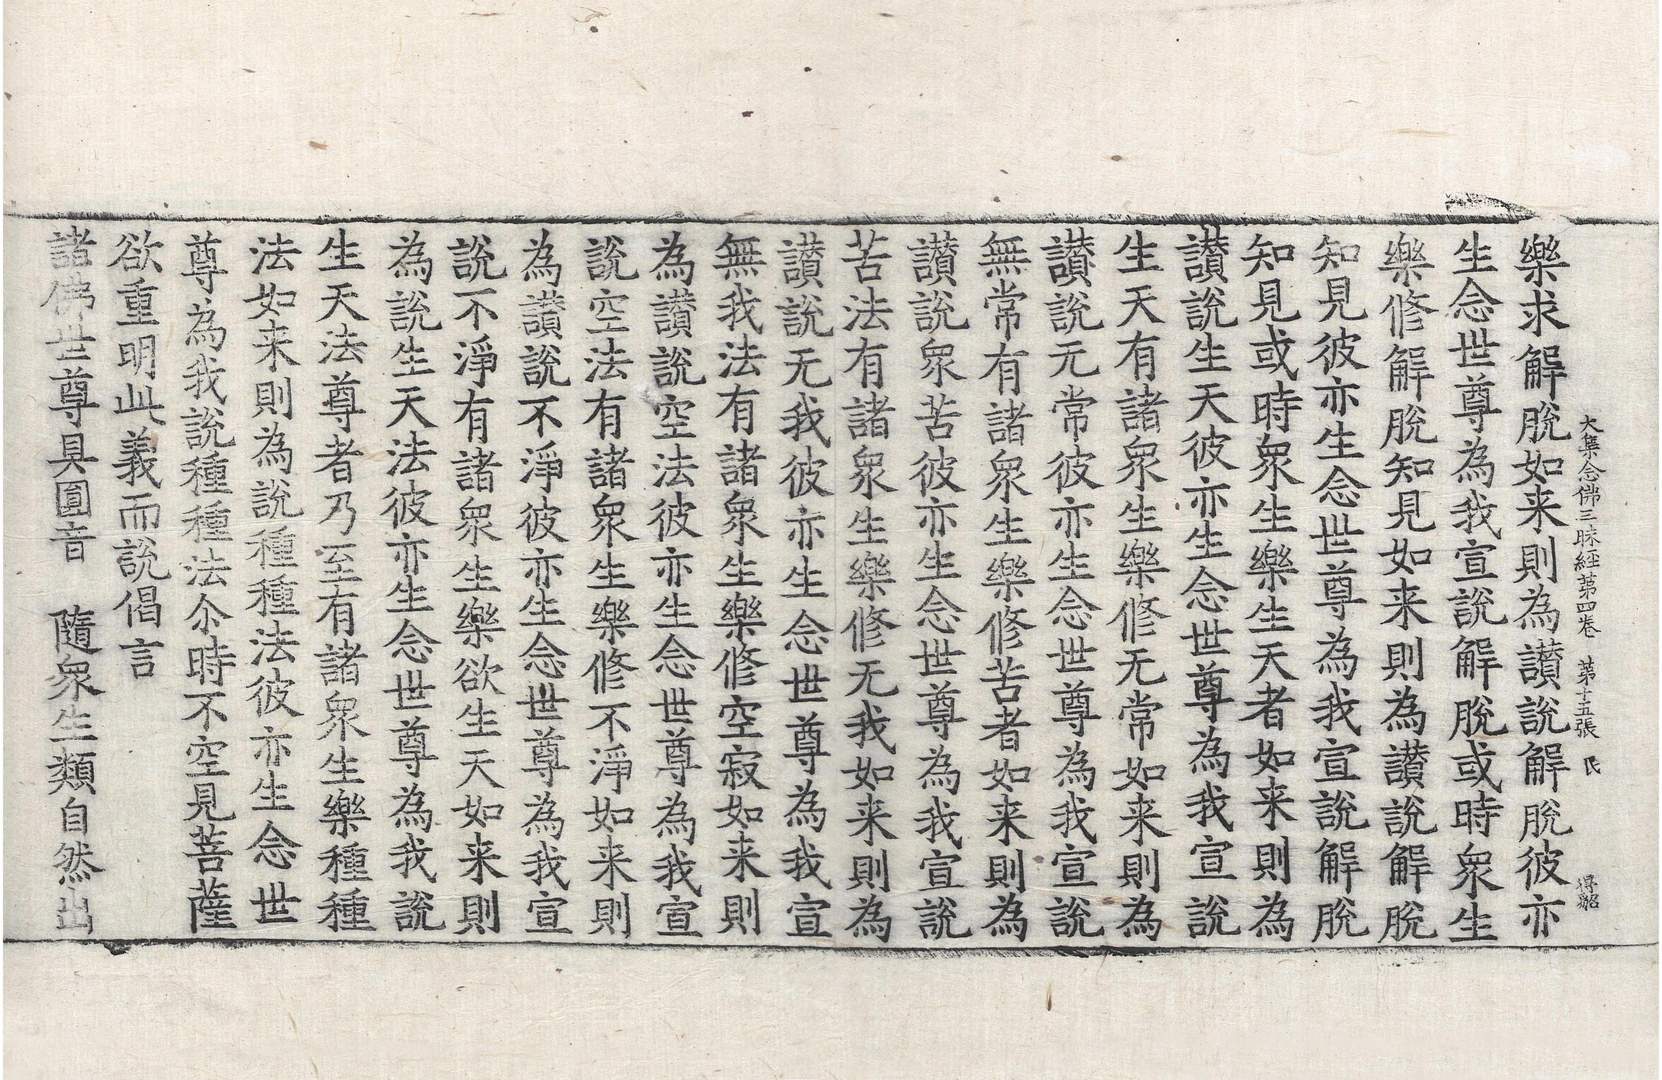 大集念佛三昧經第四卷　第十五張　民
樂求解脫如来則為讃說解脫彼亦
生念世尊為我宣說解脫或時衆生
樂修解脫知見如来則為讃說解脫
知見彼亦生念世尊為我宣說解脫
知見或時衆生樂生天者如来則為
讃說生天彼亦生念世尊為我宣說
生天有諸衆生樂修无常如来則為
讃說无常彼亦生念世尊為我宣說
無常有諸衆生樂修苦者如来則為
讃說衆苦彼亦生念世尊為我宣說
苦法有諸衆生樂修无我如来則為
讃說无我彼亦生念世尊為我宣
無我法有諸衆生樂修空寂如来則
為讃說空法彼亦生念世尊為我宣
說空法有諸衆生樂修不淨如来則
為讃說不淨彼亦生念世尊為我宣
說不淨有諸衆生樂欲生天如来則
為說生天法彼亦生念世尊為我說
生天法尊者乃至有諸衆生樂種種
法如来則為說種種法彼亦生念世
尊為我說種種法尒時不空見菩薩
欲重明此義而說偈言
諸佛世尊具圓音　隨衆生類自然出